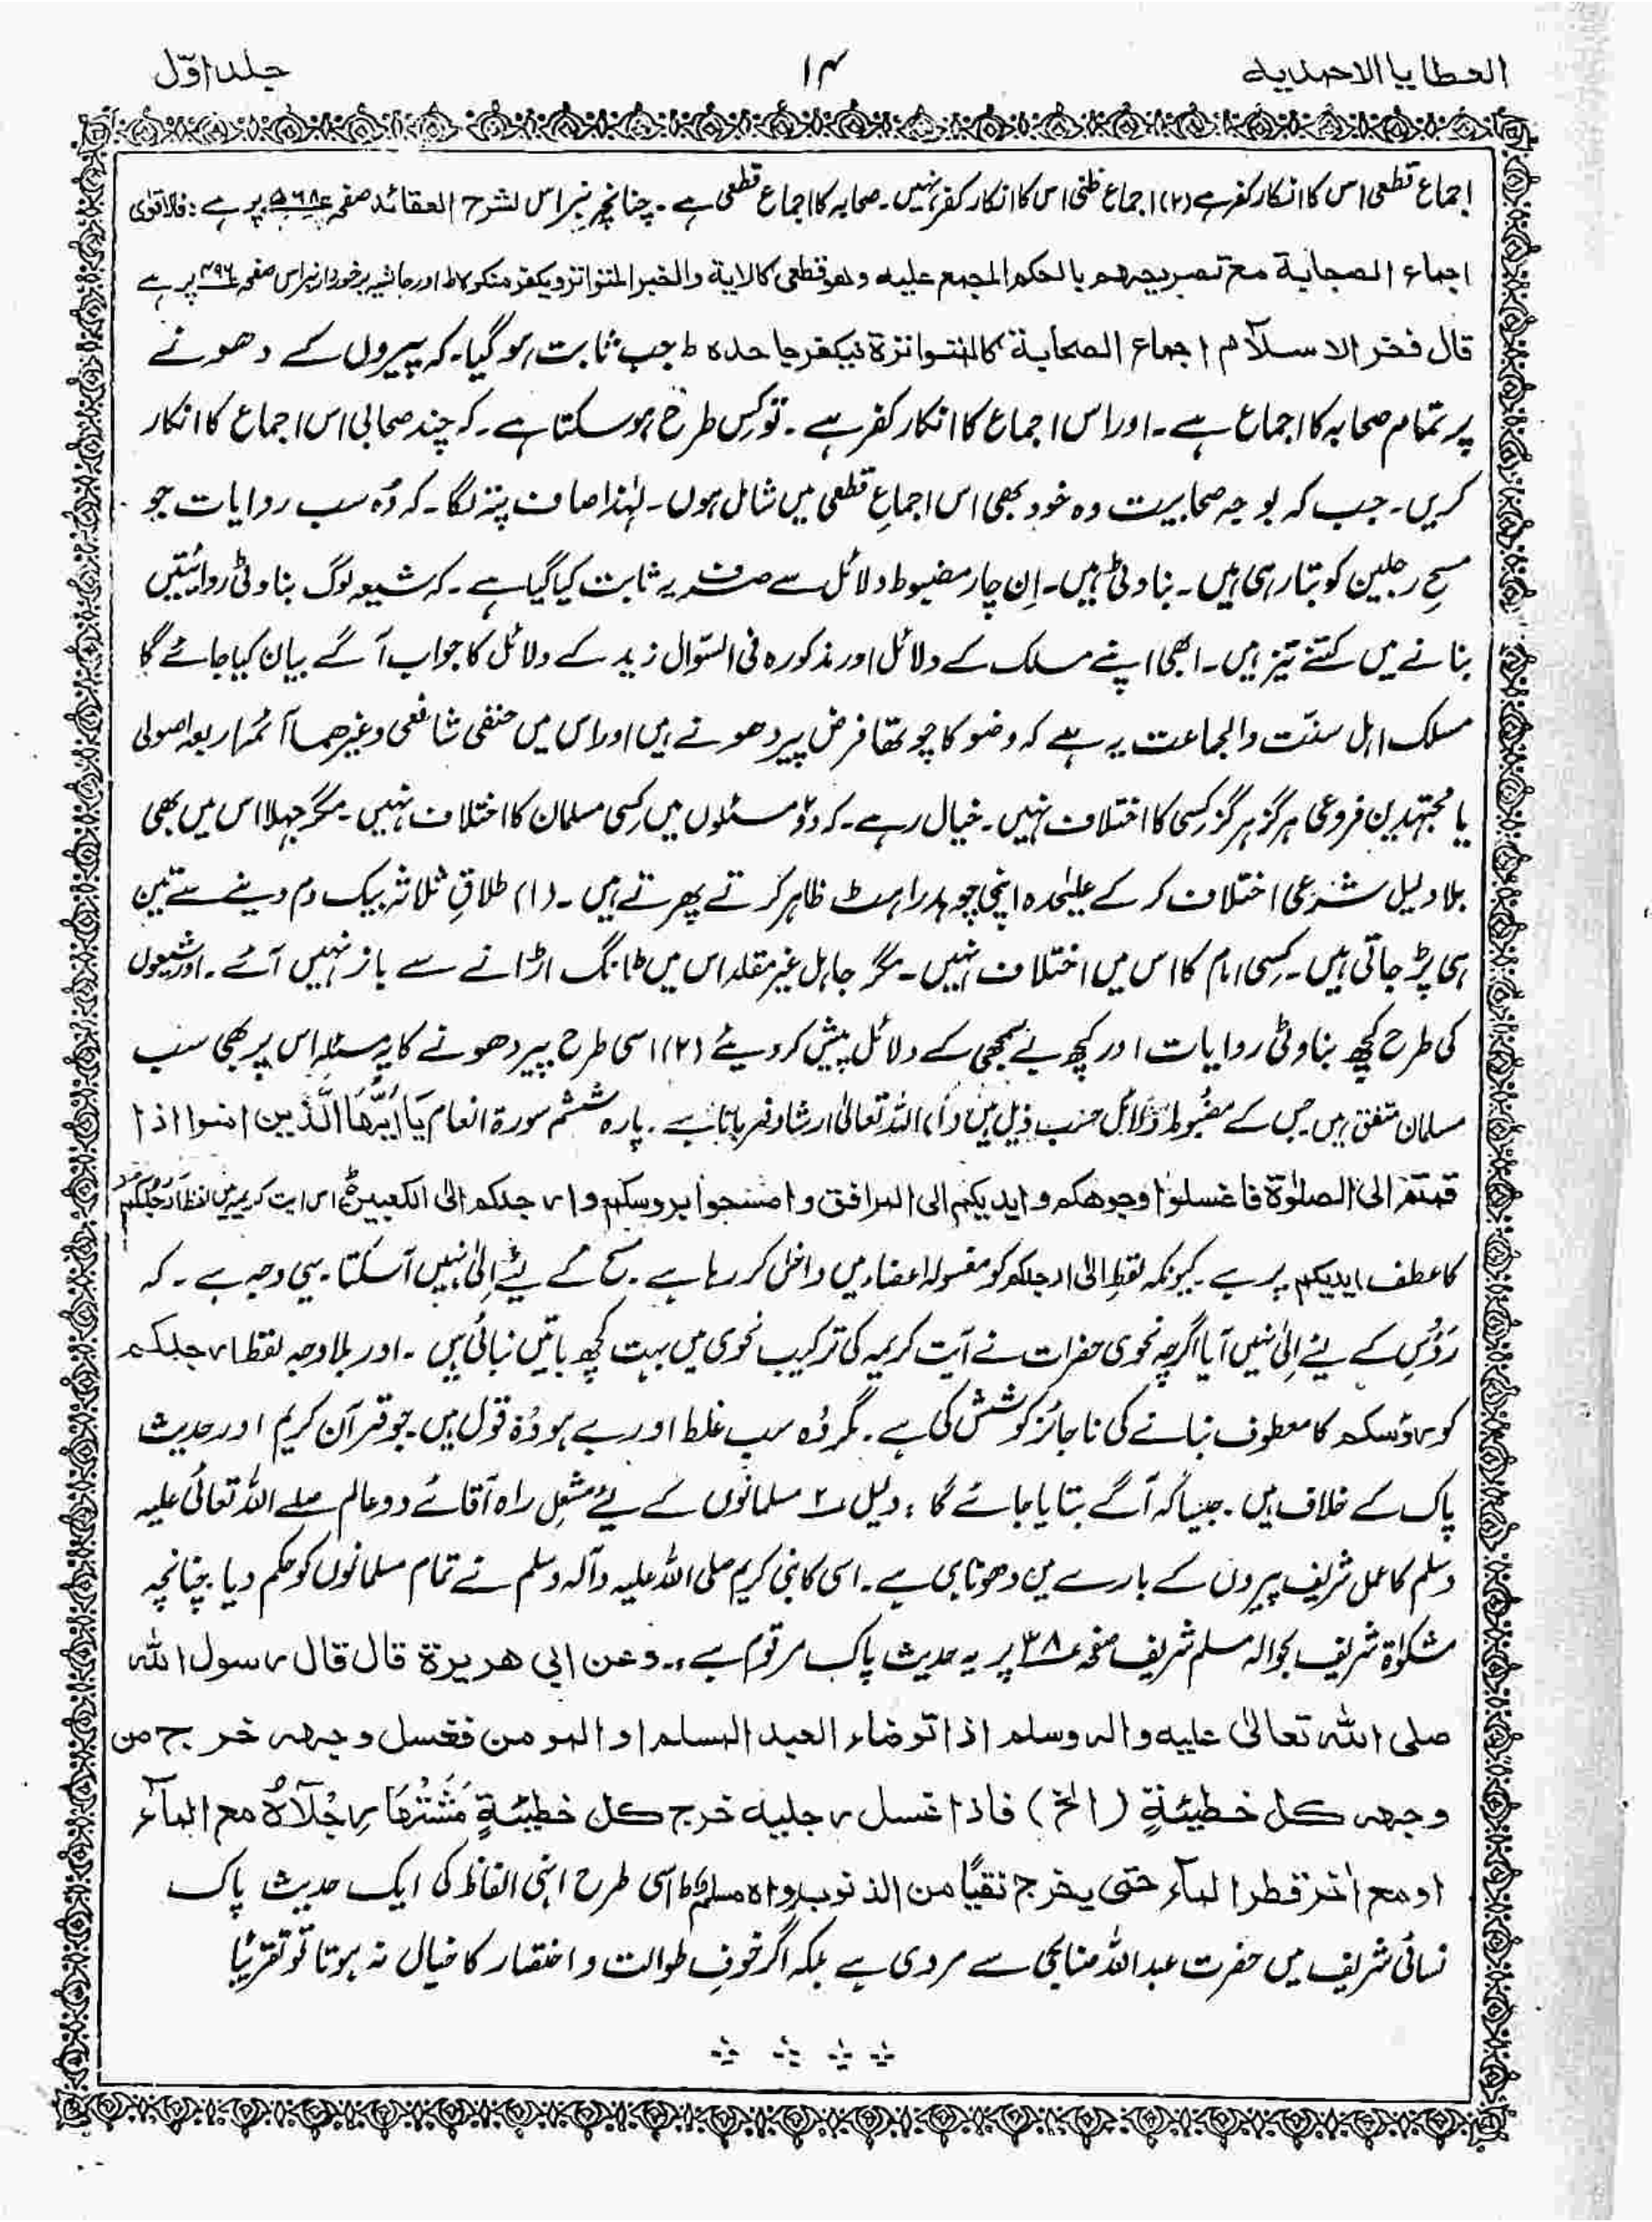 العطایا الاحمدیہ
۱۴
جلد اوّل
اجماع قطعی اس کا انکار کفر ہے (۲) اجماع ظنی اس کا انکار کفر نہیں۔ صحابہ کا اجماع قطعی ہے۔ چنانچہ نبراس لشرح العقائد صفحہ ۵۶۸ پر ہے : فلاقوٰی
اجماء الصحابة مع تصریحهم بالحکم المجمع علیه وهو قطعی کالایة والخبر المتواتر ویکفر منکرہ ط اور حاشیہ برخوردار نبراس صفحہ ۴۹۶ پر ہے
قال فخر الاسلام اجماع الصحابة کالمتواترة فیکفر جاحدہ ط جب ثابت ہو گیا۔ کہ پیروں کے دھونے
پر تمام صحابہ کا اجماع ہے۔ اور اس اجماع کا انکار کفر ہے۔ تو کس طرح ہو سکتا ہے۔ کہ چند صحابی اس اجماع کا انکار
کریں۔ جب کہ بوجہ صحابیت وہ خود بھی اس اجماعِ قطعی میں شامل ہوں۔ لہٰذا صاف پتہ لگا۔ کہ وُہ سب روایات جو
مسحِ رجلین کو بتا رہی ہیں۔ بناوٹی ہیں۔ اِن چار مضبوط دلائل سے صرف یہ ثابت کیا گیا ہے۔ کہ شیعہ لوگ بناوٹی روائتیں
بنانے میں کتنے تیز ہیں۔ ابھی اپنے مسلک کے دلائل اور مذکورہ فی السّوال زید کے دلائل کا جواب آگے بیان کیا جائے گا
مسلک اہل سنّت والجماعت یہ ہے کہ وضو کا چوتھا فرض پیر دھونے ہیں اور اس میں حنفی شافعی وغیرھما آئمہ اربعہ اصولی
یا مجتہدین فروعی ہرگز ہرگز کسی کا اختلاف نہیں۔ خیال رہے۔ کہ دو مسئلوں میں کسی مسلمان کا اختلاف نہیں۔ مگر جہلا اس میں بھی
بلا دلیل شرعی اختلاف کر کے علیٰحدہ اپنی چوہدراہٹ ظاہر کرتے پھرتے ہیں۔ (۱) طلاقِ ثلاثہ بیک دم دینے سے تین
ہی پڑ جاتی ہیں۔ کسی امام کا اس میں اختلاف نہیں۔ مگر جاہل غیر مقلد اس میں ٹانگ اڑانے سے باز نہیں آئے۔ اور شیعوں
کی طرح کچھ بناوٹی روایات اور کچھ بے سمجھی کے دلائل پیش کر دیئے (۲) اسی طرح پیر دھونے کا یہ مسئلہ اس پر بھی سب
مسلمان متفق ہیں جس کے مضبُوط دلائل حسب ذیل ہیں (۱) اللہ تعالیٰ ارشاد فرماتا ہے۔ پارہ ششم سورۃ انعام یَا اَیُّهَا الَّذین امنوا اذا
قمتم الی الصلوٰة فاغسلوا وجوهکم وایدیکم الی المرافق وامسحوا بروسکم وارجلکم الی الکعبین ط اس آیت کریمہ میں لفظ اَرْجُلَکُم
کا عطف ایدیکم پر ہے۔ کیونکہ لفظ الیٰ ارجلکم کو مغسولہ اعضاء میں داخل کر رہا ہے۔ مسح کے لئے اِلیٰ نہیں آ سکتا۔ یہی وجہ ہے۔ کہ
رَؤُسِ کے لئے اِلیٰ نہیں آیا اگرچہ نحوی حضرات نے آیت کریمہ کی ترکیب نحوی میں بہت کچھ باتیں بنائی ہیں۔ اور بلاوجہ لفظ ارجلکم
کو رؤسکم کا معطوف بنانے کی ناجائز کوشش کی ہے۔ مگر وُہ سب غلط اور بے ہودُہ قول ہیں۔ جو قرآن کریم اور حدیث
پاک کے خلاف ہیں۔ جیسا کہ آگے بتایا جائے گا : دلیل ۲ مسلمانوں کے لئے مشعلِ راہ آقائے دو عالم صلے اللہ تعالیٰ علیہ
وسلم کا عمل شریف پیروں کے بارے میں دھونا ہی ہے۔ اسی کا نبی کریم صلی اللہ علیہ وآلہ وسلم نے تمام مسلمانوں کو حکم دیا۔ چنانچہ
مشکوٰۃ شریف بحوالہ مسلم شریف صفحہ ۳۸ پر یہ حدیث پاک مرقوم ہے۔ وعن ابی هریرة قال قال رسول الله
صلی الله تعالیٰ علیه واله وسلم اذا توضاء العبد المسلم او المومن فغسل وجهه خرج من
وجهه کل خطیئةٍ (الخ) فاذا غسل رجلیه خرج کل خطیئةٍ مَشَتْهَا رِجْلَاهُ مع المآء
او مع اٰخر قطر المآء حتی یخرج نقیًا من الذنوب رواہ مسلم ط اسی طرح انہی الفاظ کی ایک حدیث پاک
نسائی شریف میں حضرت عبداللہ صنابحی سے مروی ہے بلکہ اگر خوفِ طوالت و اختصار کا خیال نہ ہوتا تو تقریبًا